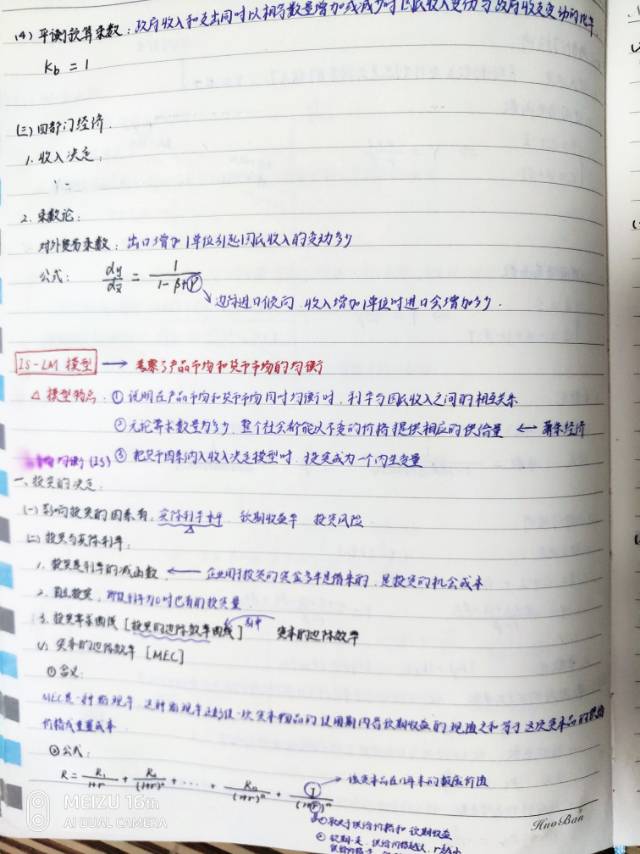 (4) 平衡预算乘数：政府收入和支出同时以相等数量增加或减少时国民收入变动与政府收支变动的比率
K_b = 1
(三) 四部门经济.
1. 收入决定：
2. 乘数论：
对外贸易乘数：出口增加1单位引起国民收入的变动多少
公式： dy/dx = 1/(1-β+γ)
边际进口倾向. 收入增加1单位时进口会增加多少.
IS-LM 模型 → 考察了产品市场和货币市场的均衡
△ 模型特点：① 说明在产品市场和货币市场同时均衡时，利率与国民收入之间的相互关系
② 无论需求数量为多少，整个社会都能以不变的价格提供相应的供给量 ↔ 萧条经济
(IS) ③ 把货币因素纳入收入决定模型时，投资成为一个内生变量
一、投资的决定：
(一) 影响投资的因素有：实际利率水平 预期收益率 投资风险
(二) 投资与实际利率：
1. 投资是利率的减函数 ← 企业用于投资的资金多半是借来的，是投资的机会成本
2. 自主投资，即使利率为0时也有的投资量
3. 投资需求曲线 [投资的边际效率曲线] 资本的边际效率
(1) 资本的边际效率 [MEC]
① 含义：
MEC是一种贴现率，这种贴现率正好使一项资本物品的使用期内各预期收益的现值之和等于这项资本品的供给
价格或重置成本
② 公式：
R = R₁/(1+r) + R₂/(1+r)² + ... + Rₙ/(1+r)ⁿ + J/(1+r)ⁿ
该资本品在n年末的报废价值
① 取决于供给价格和预期收益
MEIZU 16th
AI DUAL CAMERA
HuoBan